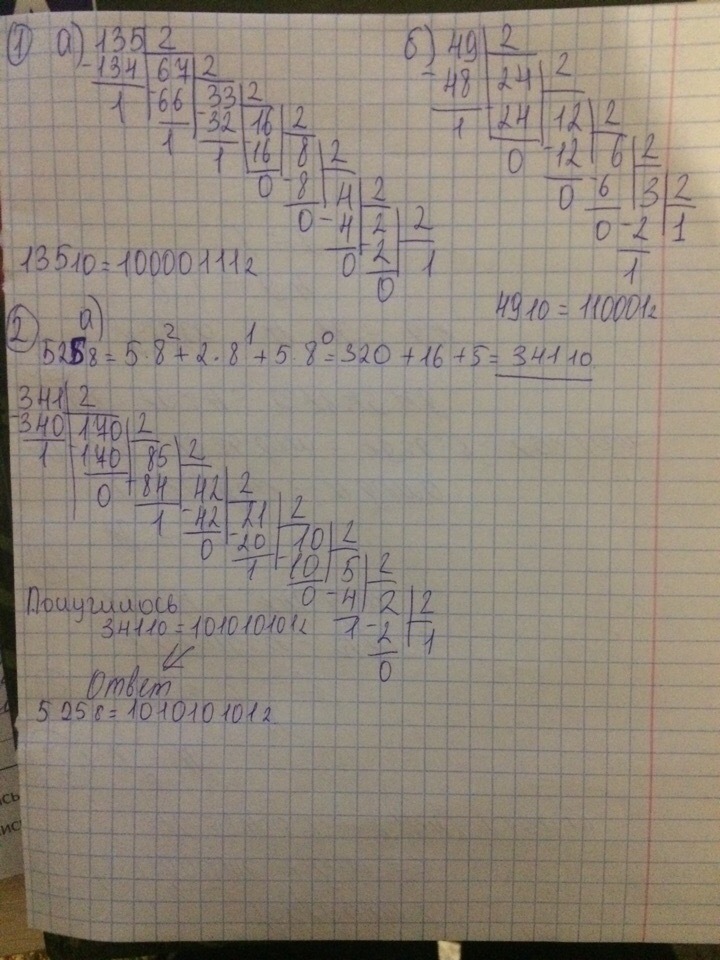 ① а) 135 2
-134 67 2
1 -66 33 2
1 -32 16 2
1 -16 8 2
0 -8 4 2
0 -4 2 2
0 -2 1
0
135₁₀ = 10000111₂
б) 49 2
-48 24 2
1 -24 12 2
0 -12 6 2
0 -6 3 2
0 -2 1
1
49₁₀ = 110001₂
② а)
525₈ = 5·8² + 2·8¹ + 5·8⁰ = 320 + 16 + 5 = 341₁₀
-341 2
340 170 2
1 -170 85 2
0 -84 42 2
1 -42 21 2
0 -20 10 2
1 -10 5 2
0 -4 2 2
1 -2 1
0
Получилось
341₁₀ = 101010101₂
Ответ
525₈ = 101010101₂